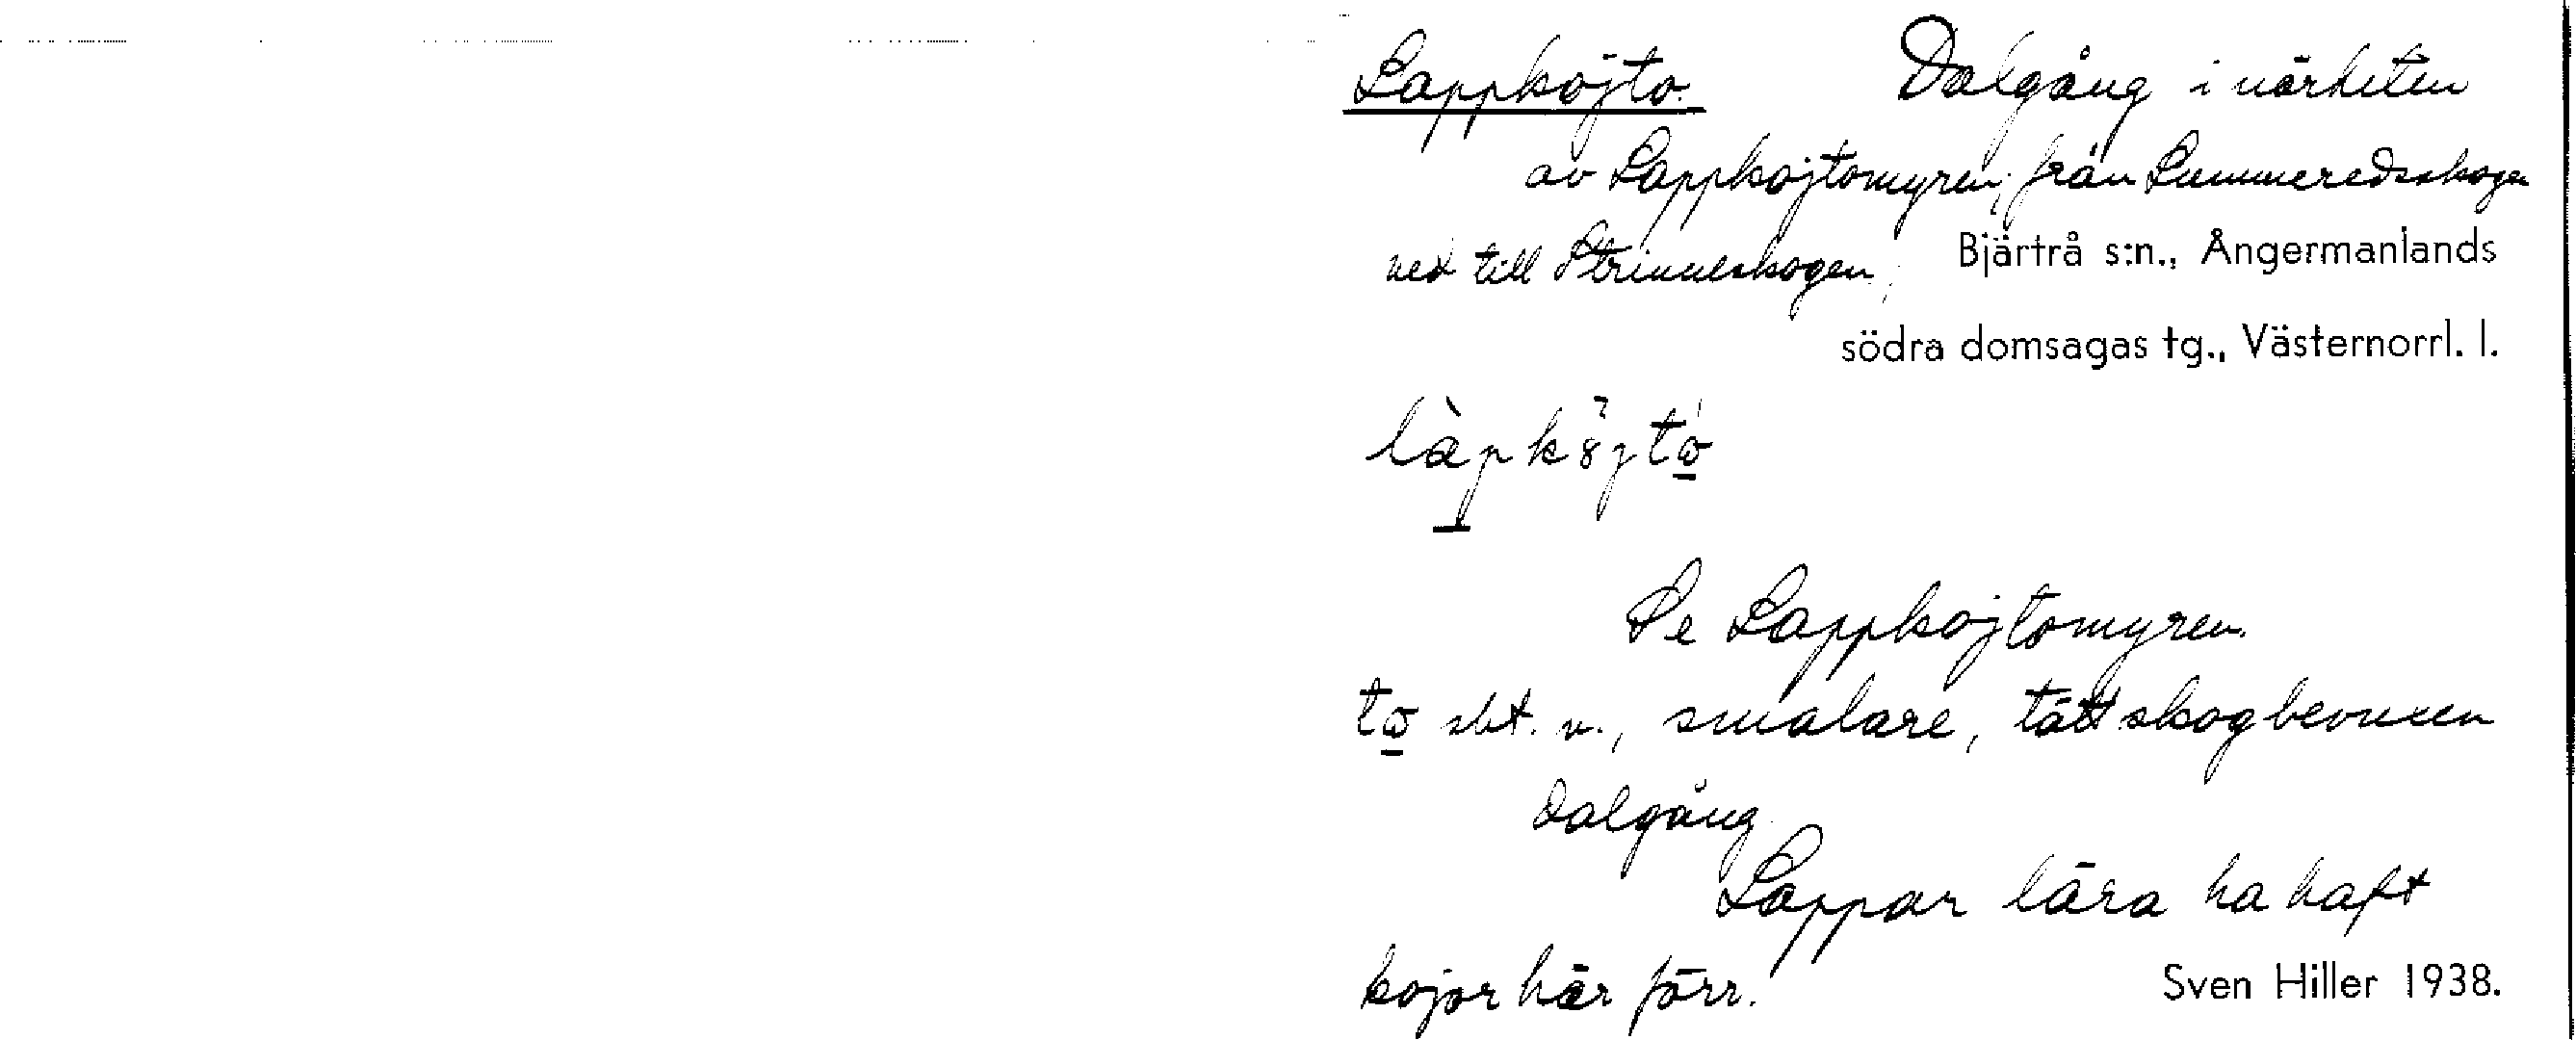 Lappkojto. Dalgång i närheten
av Lappkojtomyren, från Lummeredsskogen
ned till Strinneskogen, Bjärtrå s:n., Ångermanlands
södra domsagas tg., Västernorrl. l.
Se Lappkojtomyren.
sbt. n., smalare, tätt skogbevuxen
dalgång.
Lappar lära ha haft
kojor här förr.
Sven Hiller 1938.